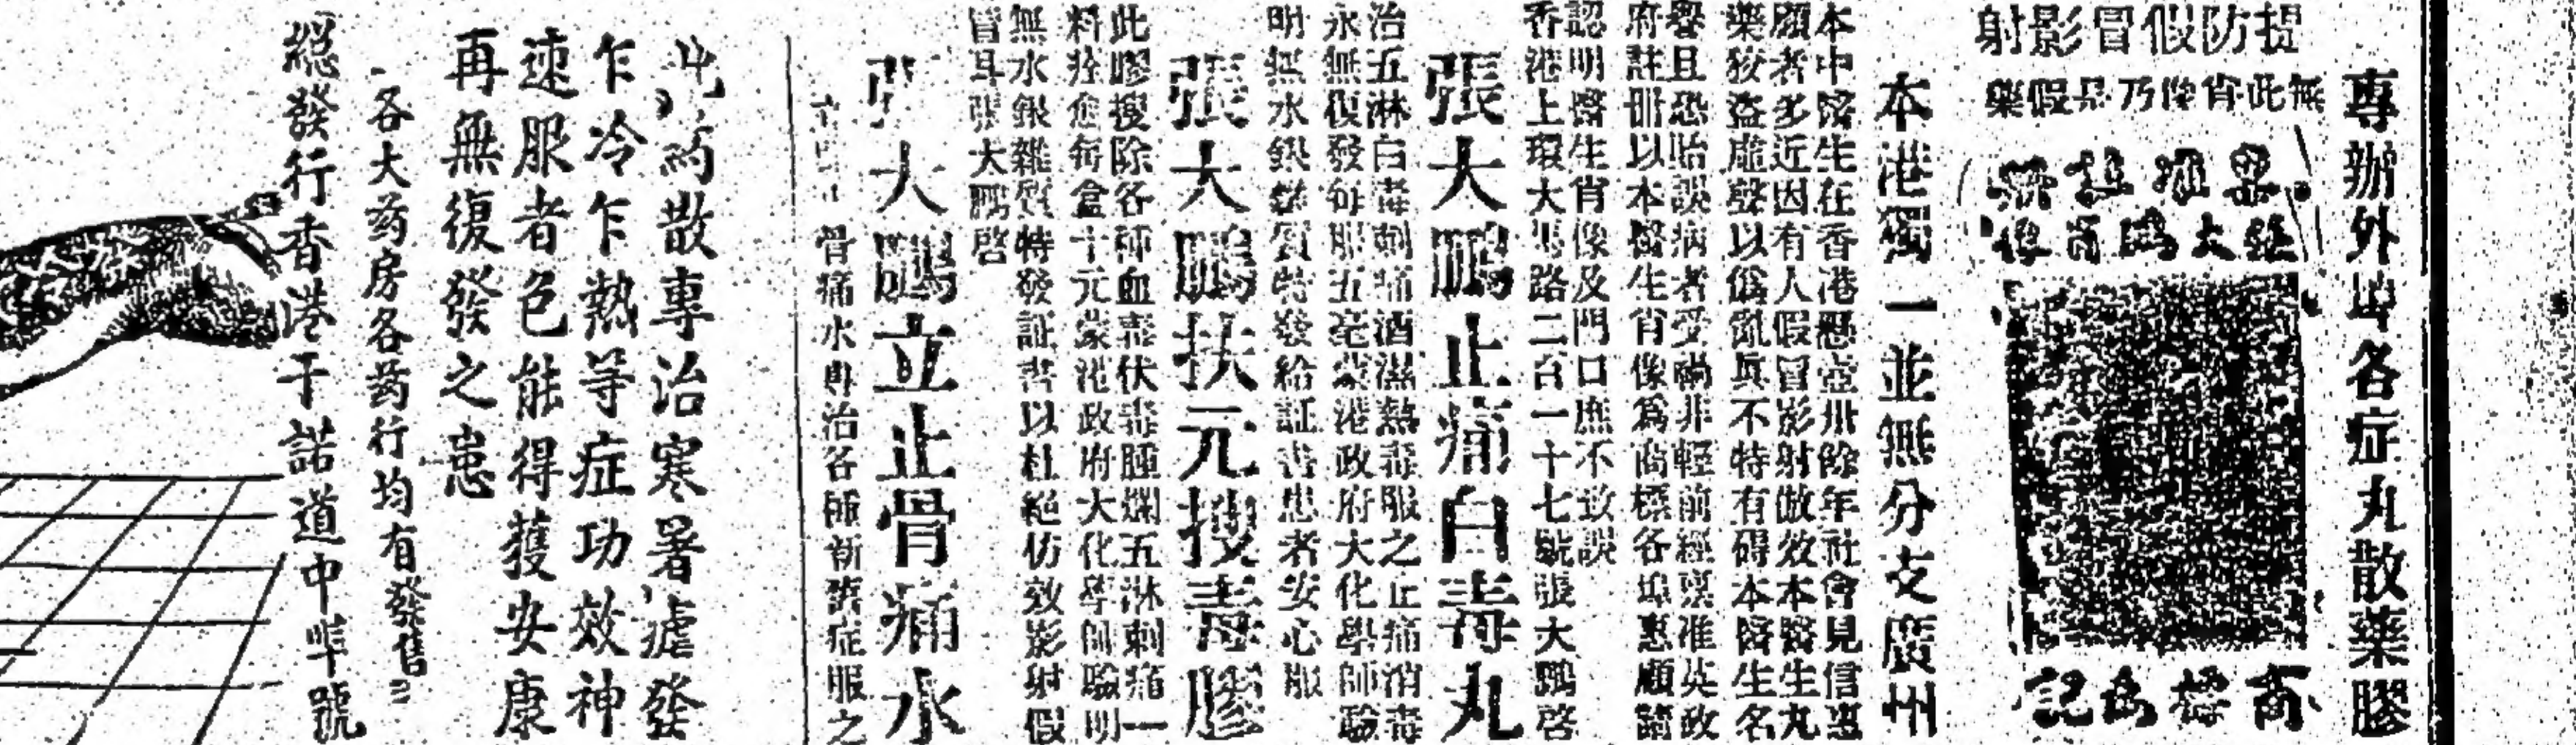 專辦外埠各症丸散藥膠
提防假冒影射
無此肖像乃是假藥
商標為記
本港獨一並無分支廣州
本中醫生在香港懸壺卅餘年社會見信惠
顧者多近因有人假冒影射倣效本醫生丸
藥狡盜虛聲以僞亂真不特有碍本醫生名
譽且恐貽誤病者受禍非輕前經稟准英政
府註冊以本醫生肖像為商標各埠惠顧請
認明醫生肖像及門口庶不致誤
香港上環大馬路二百一十七號張大鵬啓
張大鵬止痛白毒丸
治五淋白毒刺痛酒濕熱毒服之止痛消毒
永無復發每服五毫蒙港政府大化學師驗
明無水銀雜質特發給証書患者安心服
張大鵬扶元搜毒膠
此膠搜除各種血毒伏毒腫爛五淋刺痛一
料痊愈每盒十元蒙港政府大化學師驗明
無水銀雜質特發証書以杜絕仿效影射假
冒耳張大鵬啓
張大鵬立止骨痛水
骨痛水專治各種新舊症服之
此药散專治寒暑瘧發
乍冷乍熱等症功效神
速服者色能得獲安康
再無復發之患
各大药房各药行均有發售
總發行香港干諾道中 號